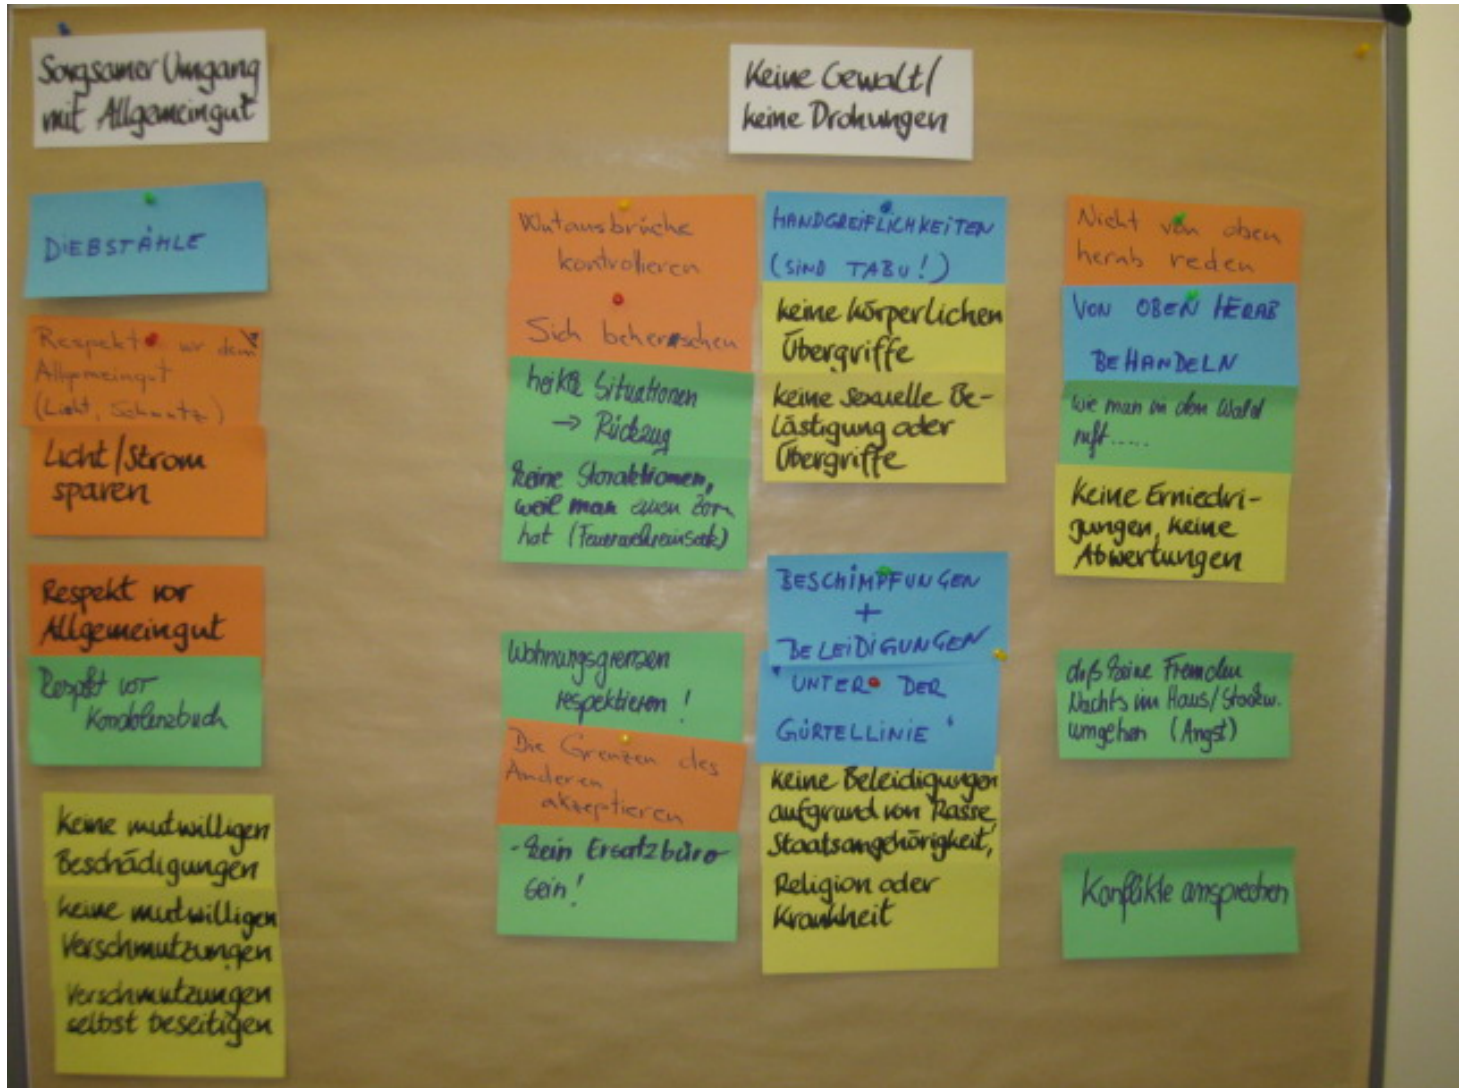 Sorgsamer Umgang
mit Allgemeingut
DIEBSTÄHLE
Respekt vor dem
Allgemeingut
(Licht, Schmutz)
Licht/Strom
sparen
Respekt vor
Allgemeingut
Respekt vor
Kondolenzbuch
keine mutwilligen
Beschädigungen
keine mutwilligen
Verschmutzungen
Verschmutzungen
selbst beseitigen
Keine Gewalt/
keine Drohungen
Wutausbrüche
kontrollieren
Sich beherrschen
heikle Situationen
→ Rückzug
keine
weil man einen Zorn
hat (Feuerwehreinsatz)
Wohnungsgrenzen
respektieren!
Die Grenzen des
Anderen
akzeptieren
- kein Ersatzbüro
sein!
HANDGREIFLICHKEITEN
(SIND TABU!)
keine körperlichen
Übergriffe
keine sexuelle Be-
lästigung oder
Übergriffe
BESCHIMPFUNGEN
+
BELEIDIGUNGEN
"UNTER DER
GÜRTELLINIE"
keine Beleidigungen
aufgrund von Rasse,
Staatsangehörigkeit,
Religion oder
Krankheit
Nicht von oben
herab reden
VON OBEN HERAB
BEHANDELN
wie man in den Wald
ruft.....
Keine Erniedri-
gungen, keine
Abwertungen
daß keine Fremden
Nachts im Haus/Stockw.
umgehen (Angst)
Konflikte ansprechen